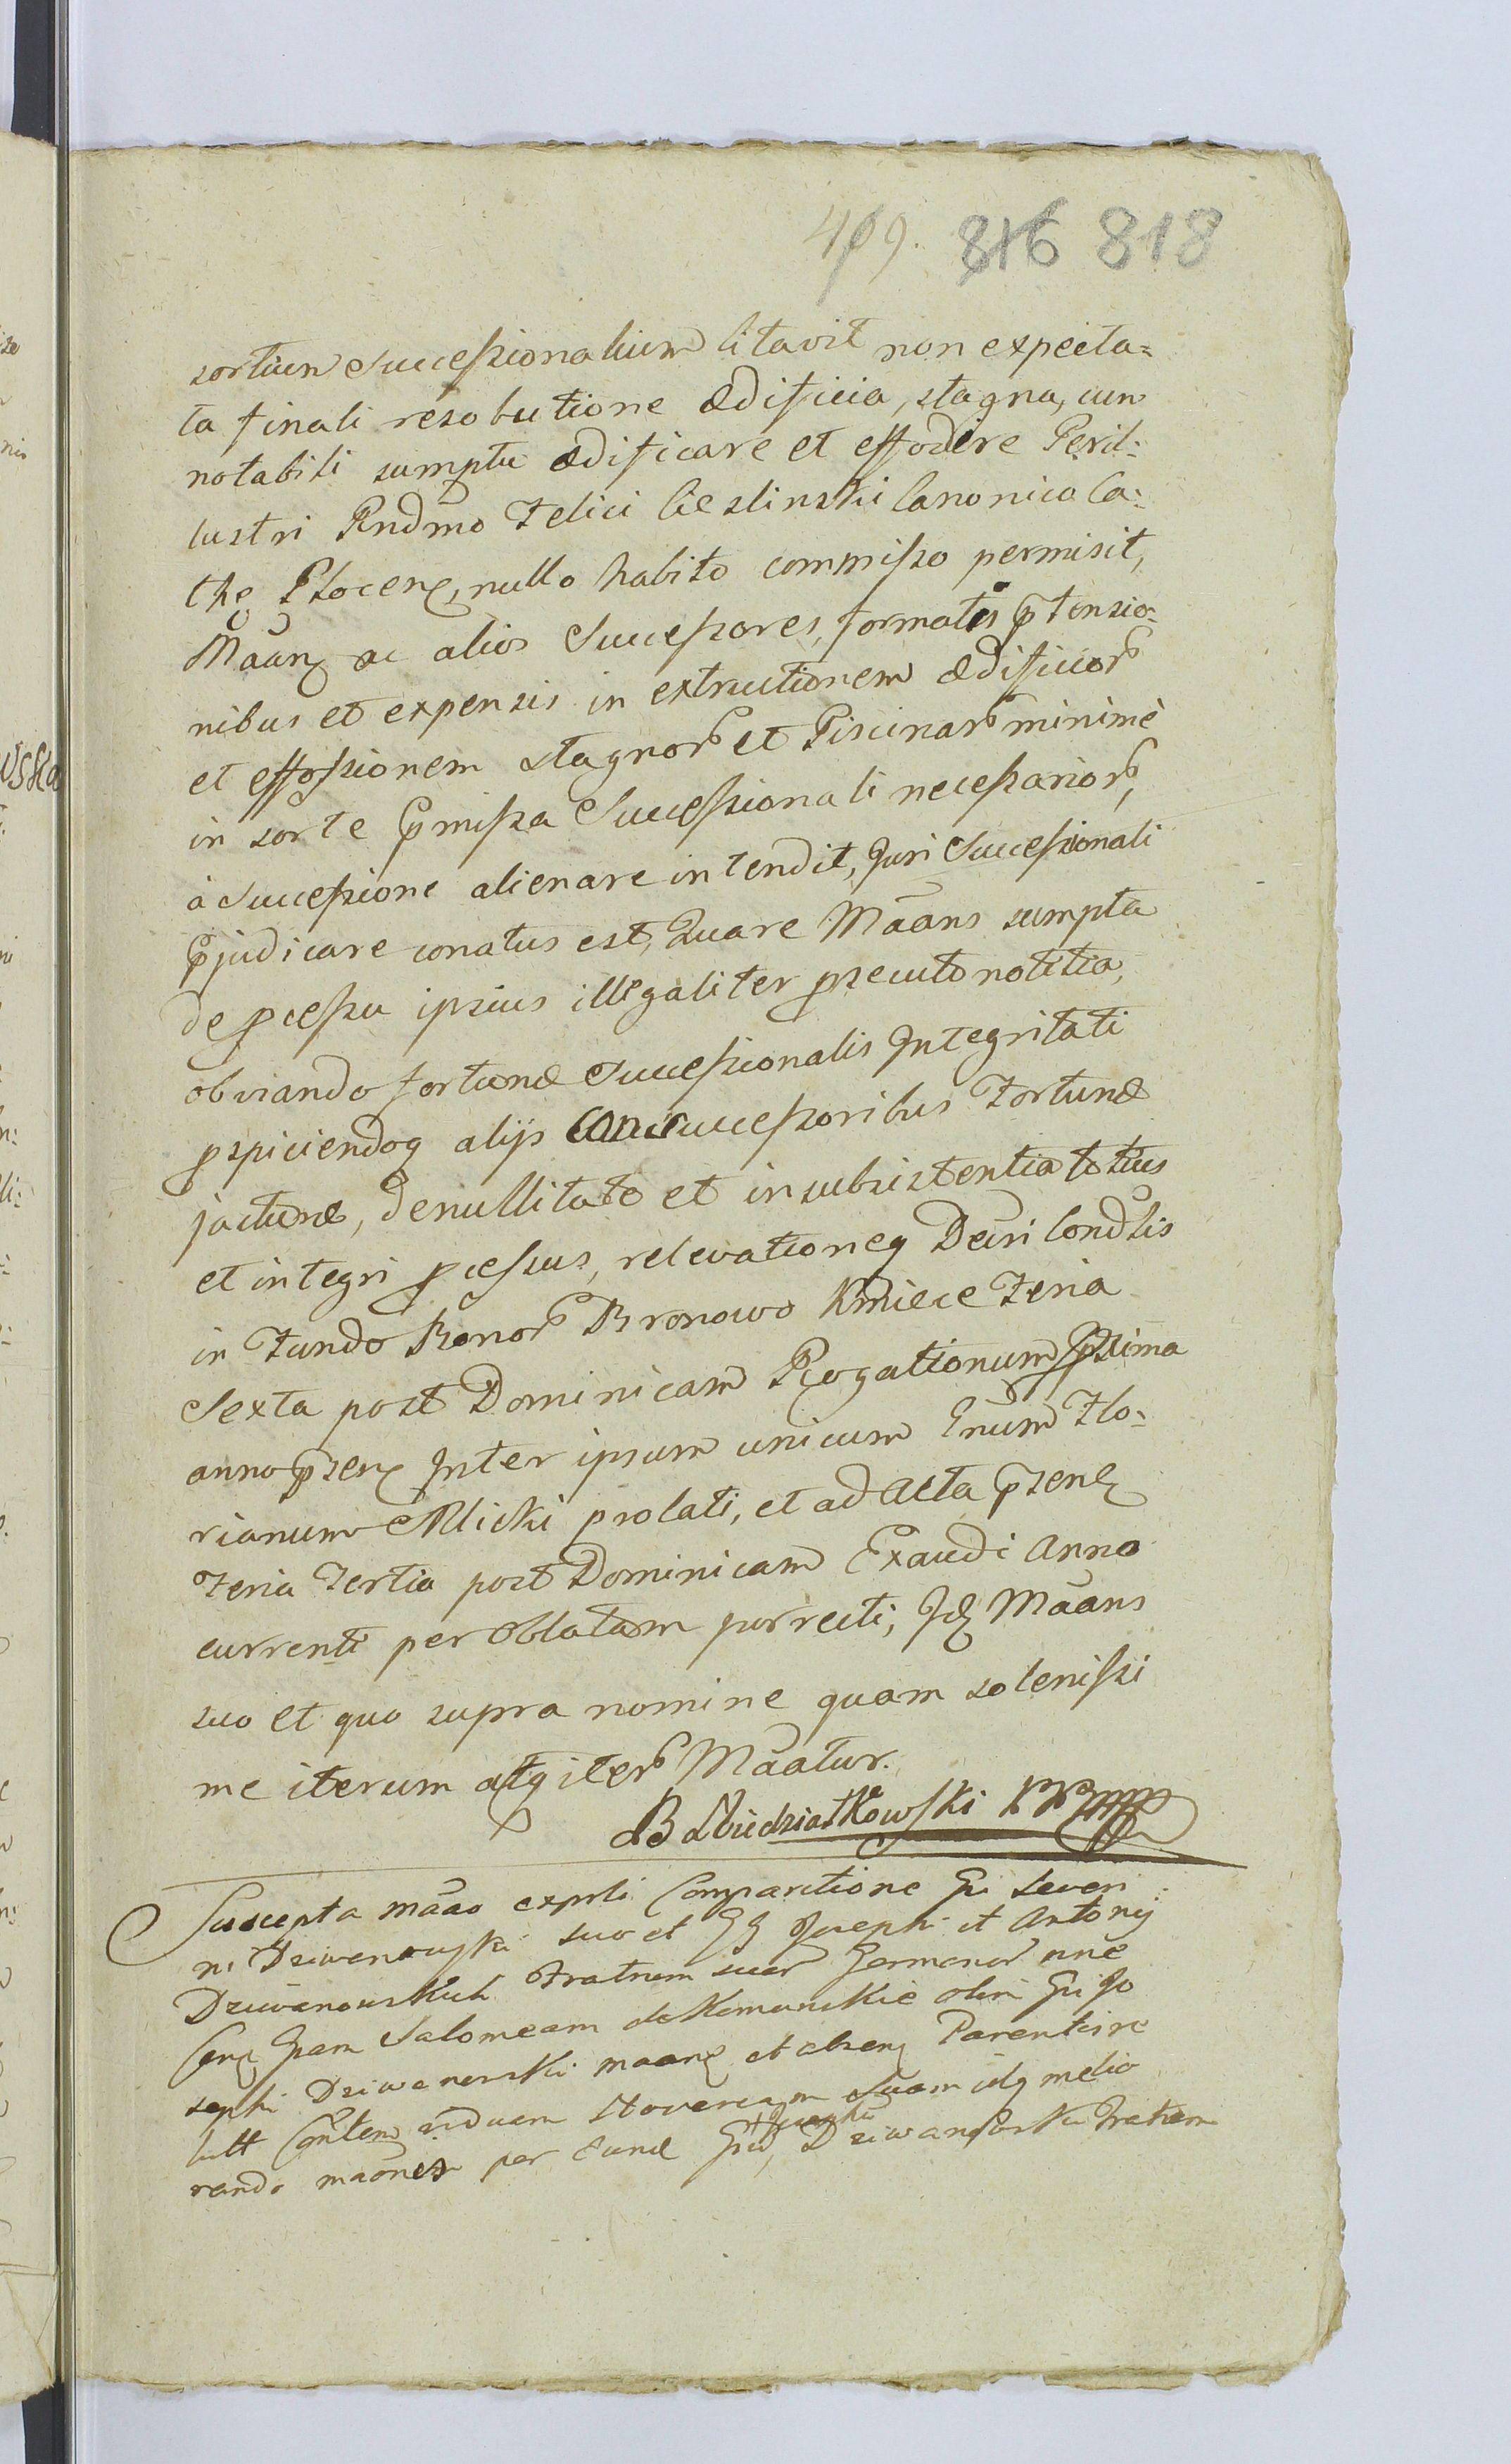 409. 816 818
sortium Successionalium litavit non expecta=
ta finali resolutione ædificia, stagna, cum
notabili sumptu ædificare et effodere Peril:
lustri Rndmo Felici Cieslinski Canonico Ca:
the Plocen, nullo habito commisso permisit,
Maan ac alios Successores, formatis ptensio:
nibus et expensis in extructionem ædificior
et effossionem stagnor et Piscinar minimè
in sorte pmissa Successionali necessarior,
à Successione alienare intendit, Juri Successionali
pjudicare conatus est, Quare Māans sumpta
de pcessu ipsius illegaliter psecuto notitia,
obviando fortunæ Successionalis Integritati
pspiciendoq alijs Consuccessoribus Fortunæ
jacturæ, de nullitate et insubsistentia totius
et integri pcessus, relevationeq Decri Condlis
in Fundo Bonor Bronowo Kmiece Feria
Sexta post Dominicam Rogationum pxima
anno psen Inter ipsum unicum Gnum Flo:
rianum Mlicki prolati, et ad Acta psen
Feria Tertia post Dominicam Exaudi Anno
currenti per Oblatam porrecti, Id Māans
suo et quo supra nomine quam solenissi
me iterum atq iter Māatur.
B Niedziałkowski
Suscepta māao exprli Comparitione Gi Severi
ni Dziwanowski suo et GG Josephi et Antonij
Dziwanowskich Fratrum suor Germanor nne
Salomeam de Komunskie olim Gi Jo
sephi Dziwanowski maan et absen Parentis ve
viduam Novercam Suam idq melio
rando māones per Eund Gū, Josephū Dziwanowski Fratrem